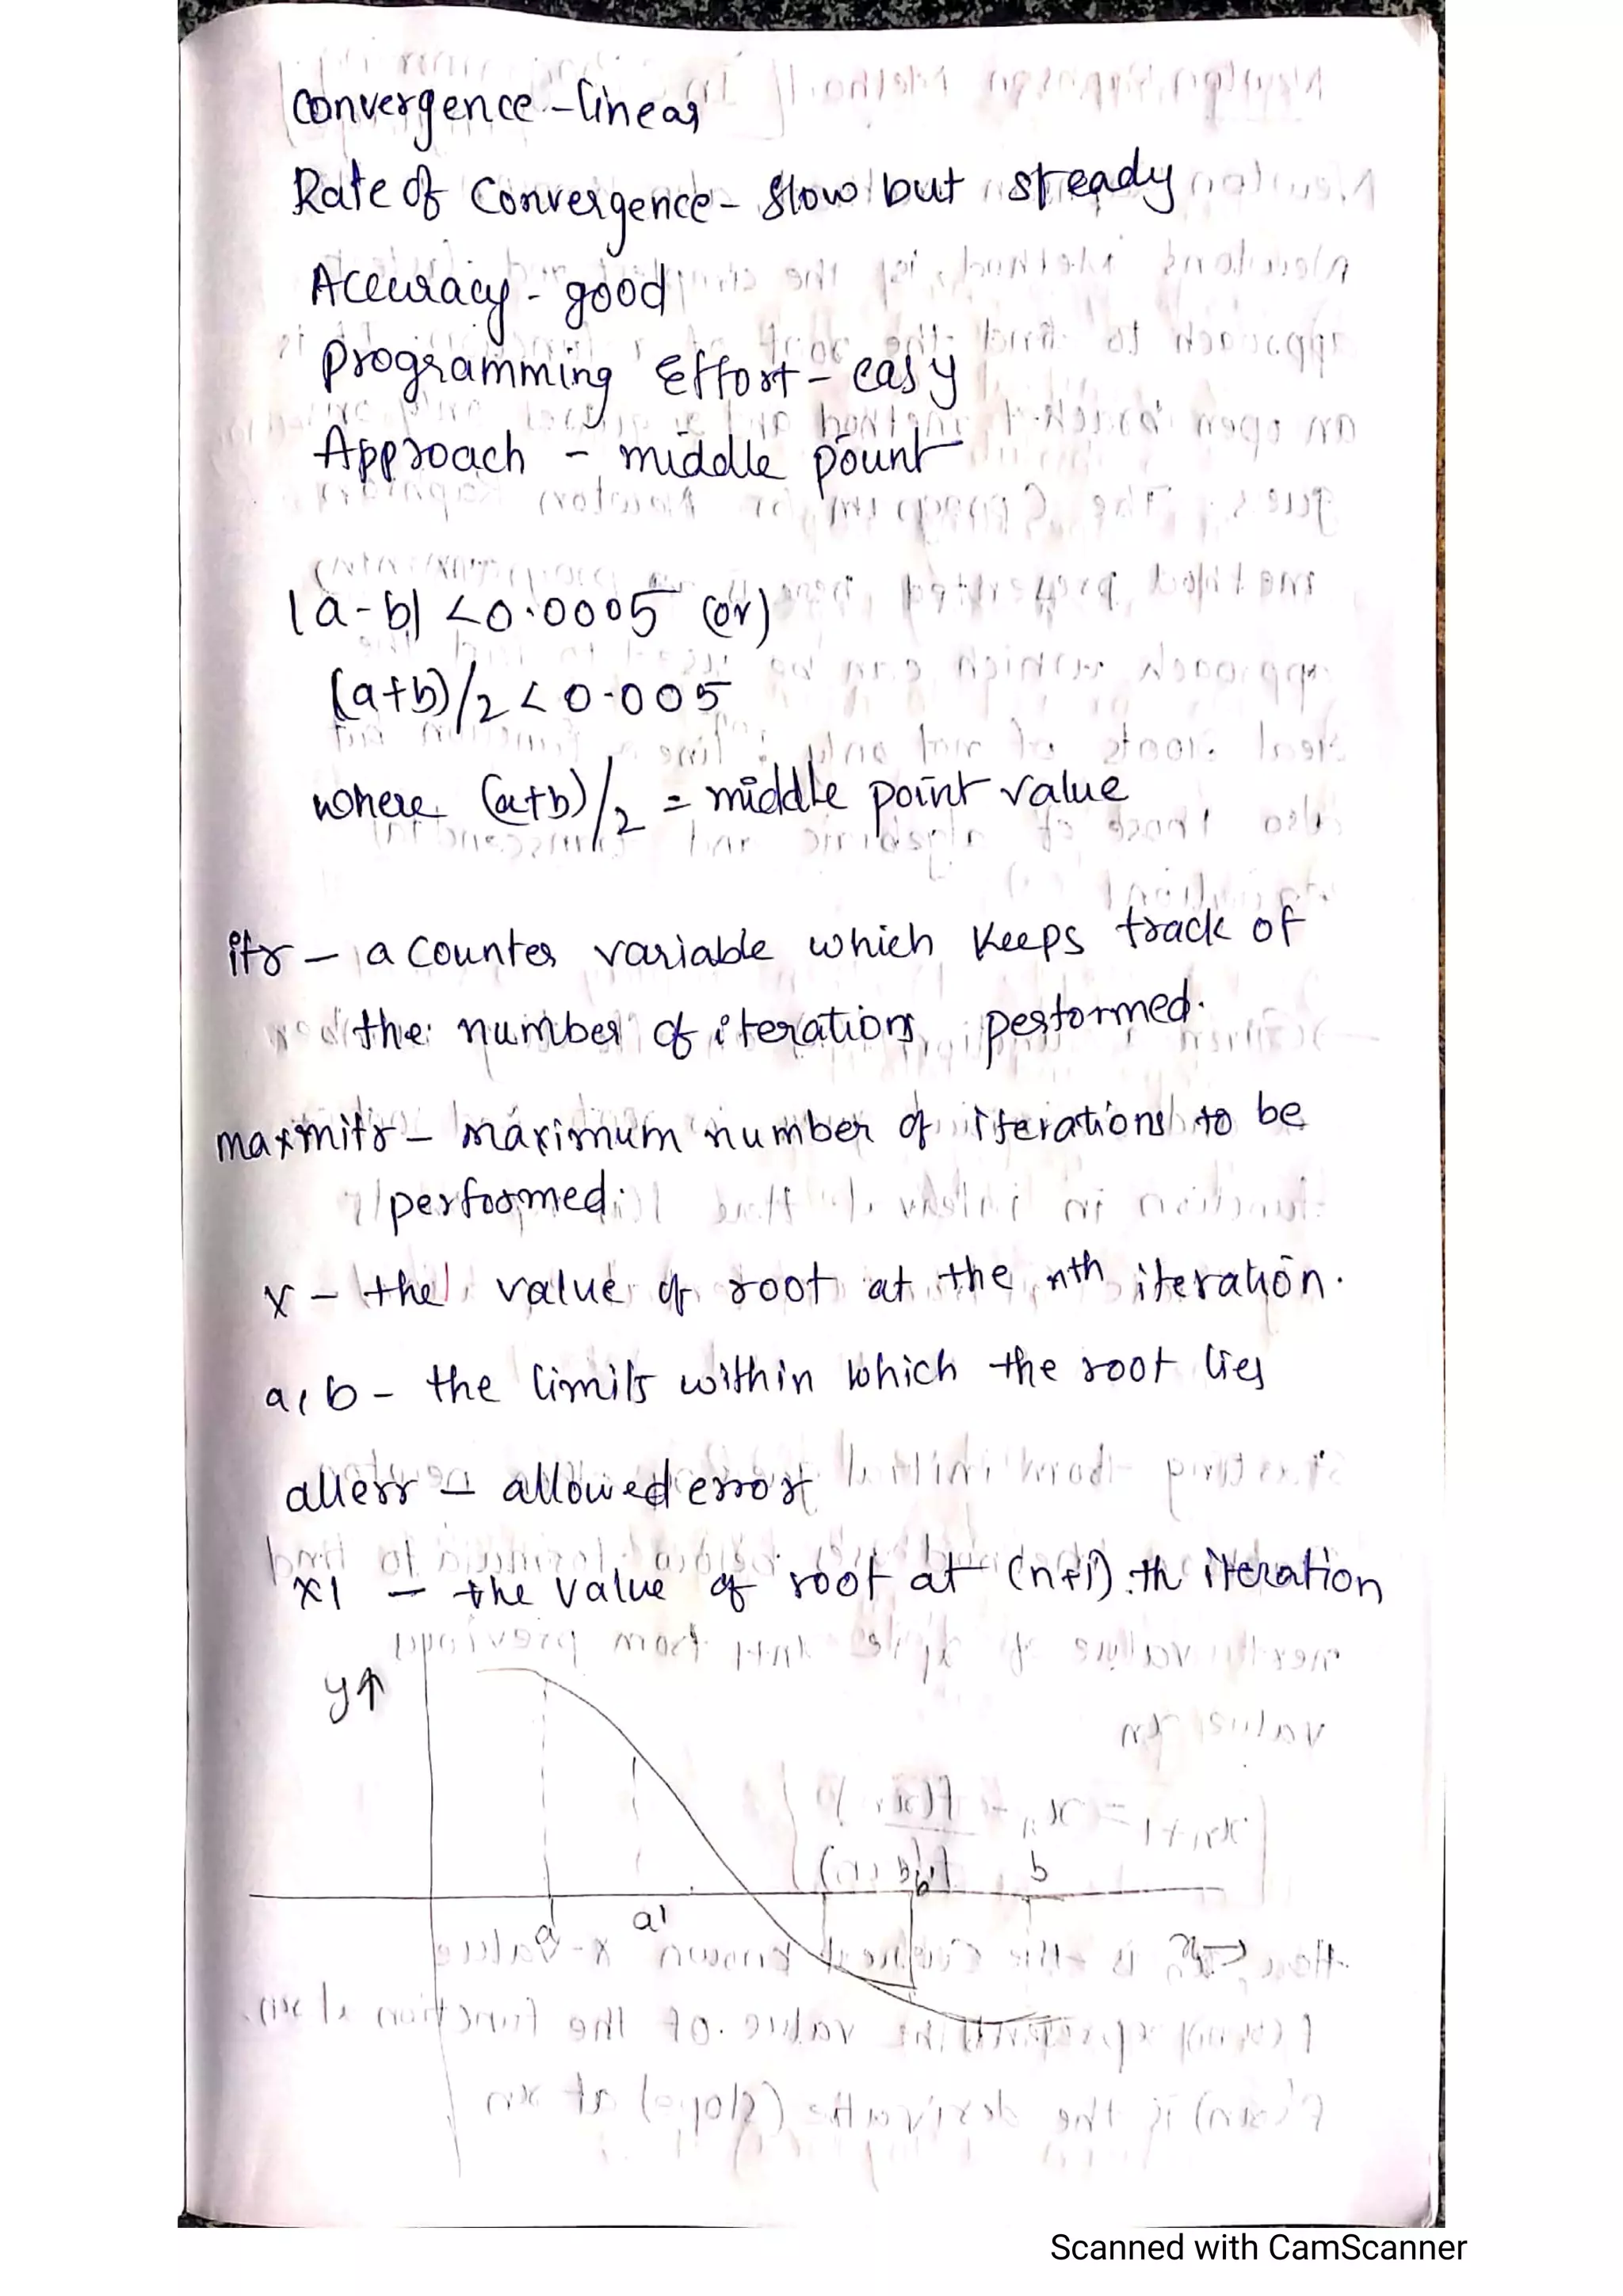 Convergence - linear
Rate of Convergence - slow but steady
Accuracy - good
programming Effort - easy
Approach - middle point
|a-b| <0.0005 (or)
(a+b)/2 < 0.005
where (a+b)/2 = middle point value
itr - a counter variable which keeps track of
the number of iterations performed.
maxmitr - maximum number of iterations to be
performed.
x - the value of root at the nth iteration.
a, b - the limits within which the root lies
allerr - allowed error
x1 - the value of root at (n+1)th iteration
y↑
b
a a'
Scanned with CamScanner